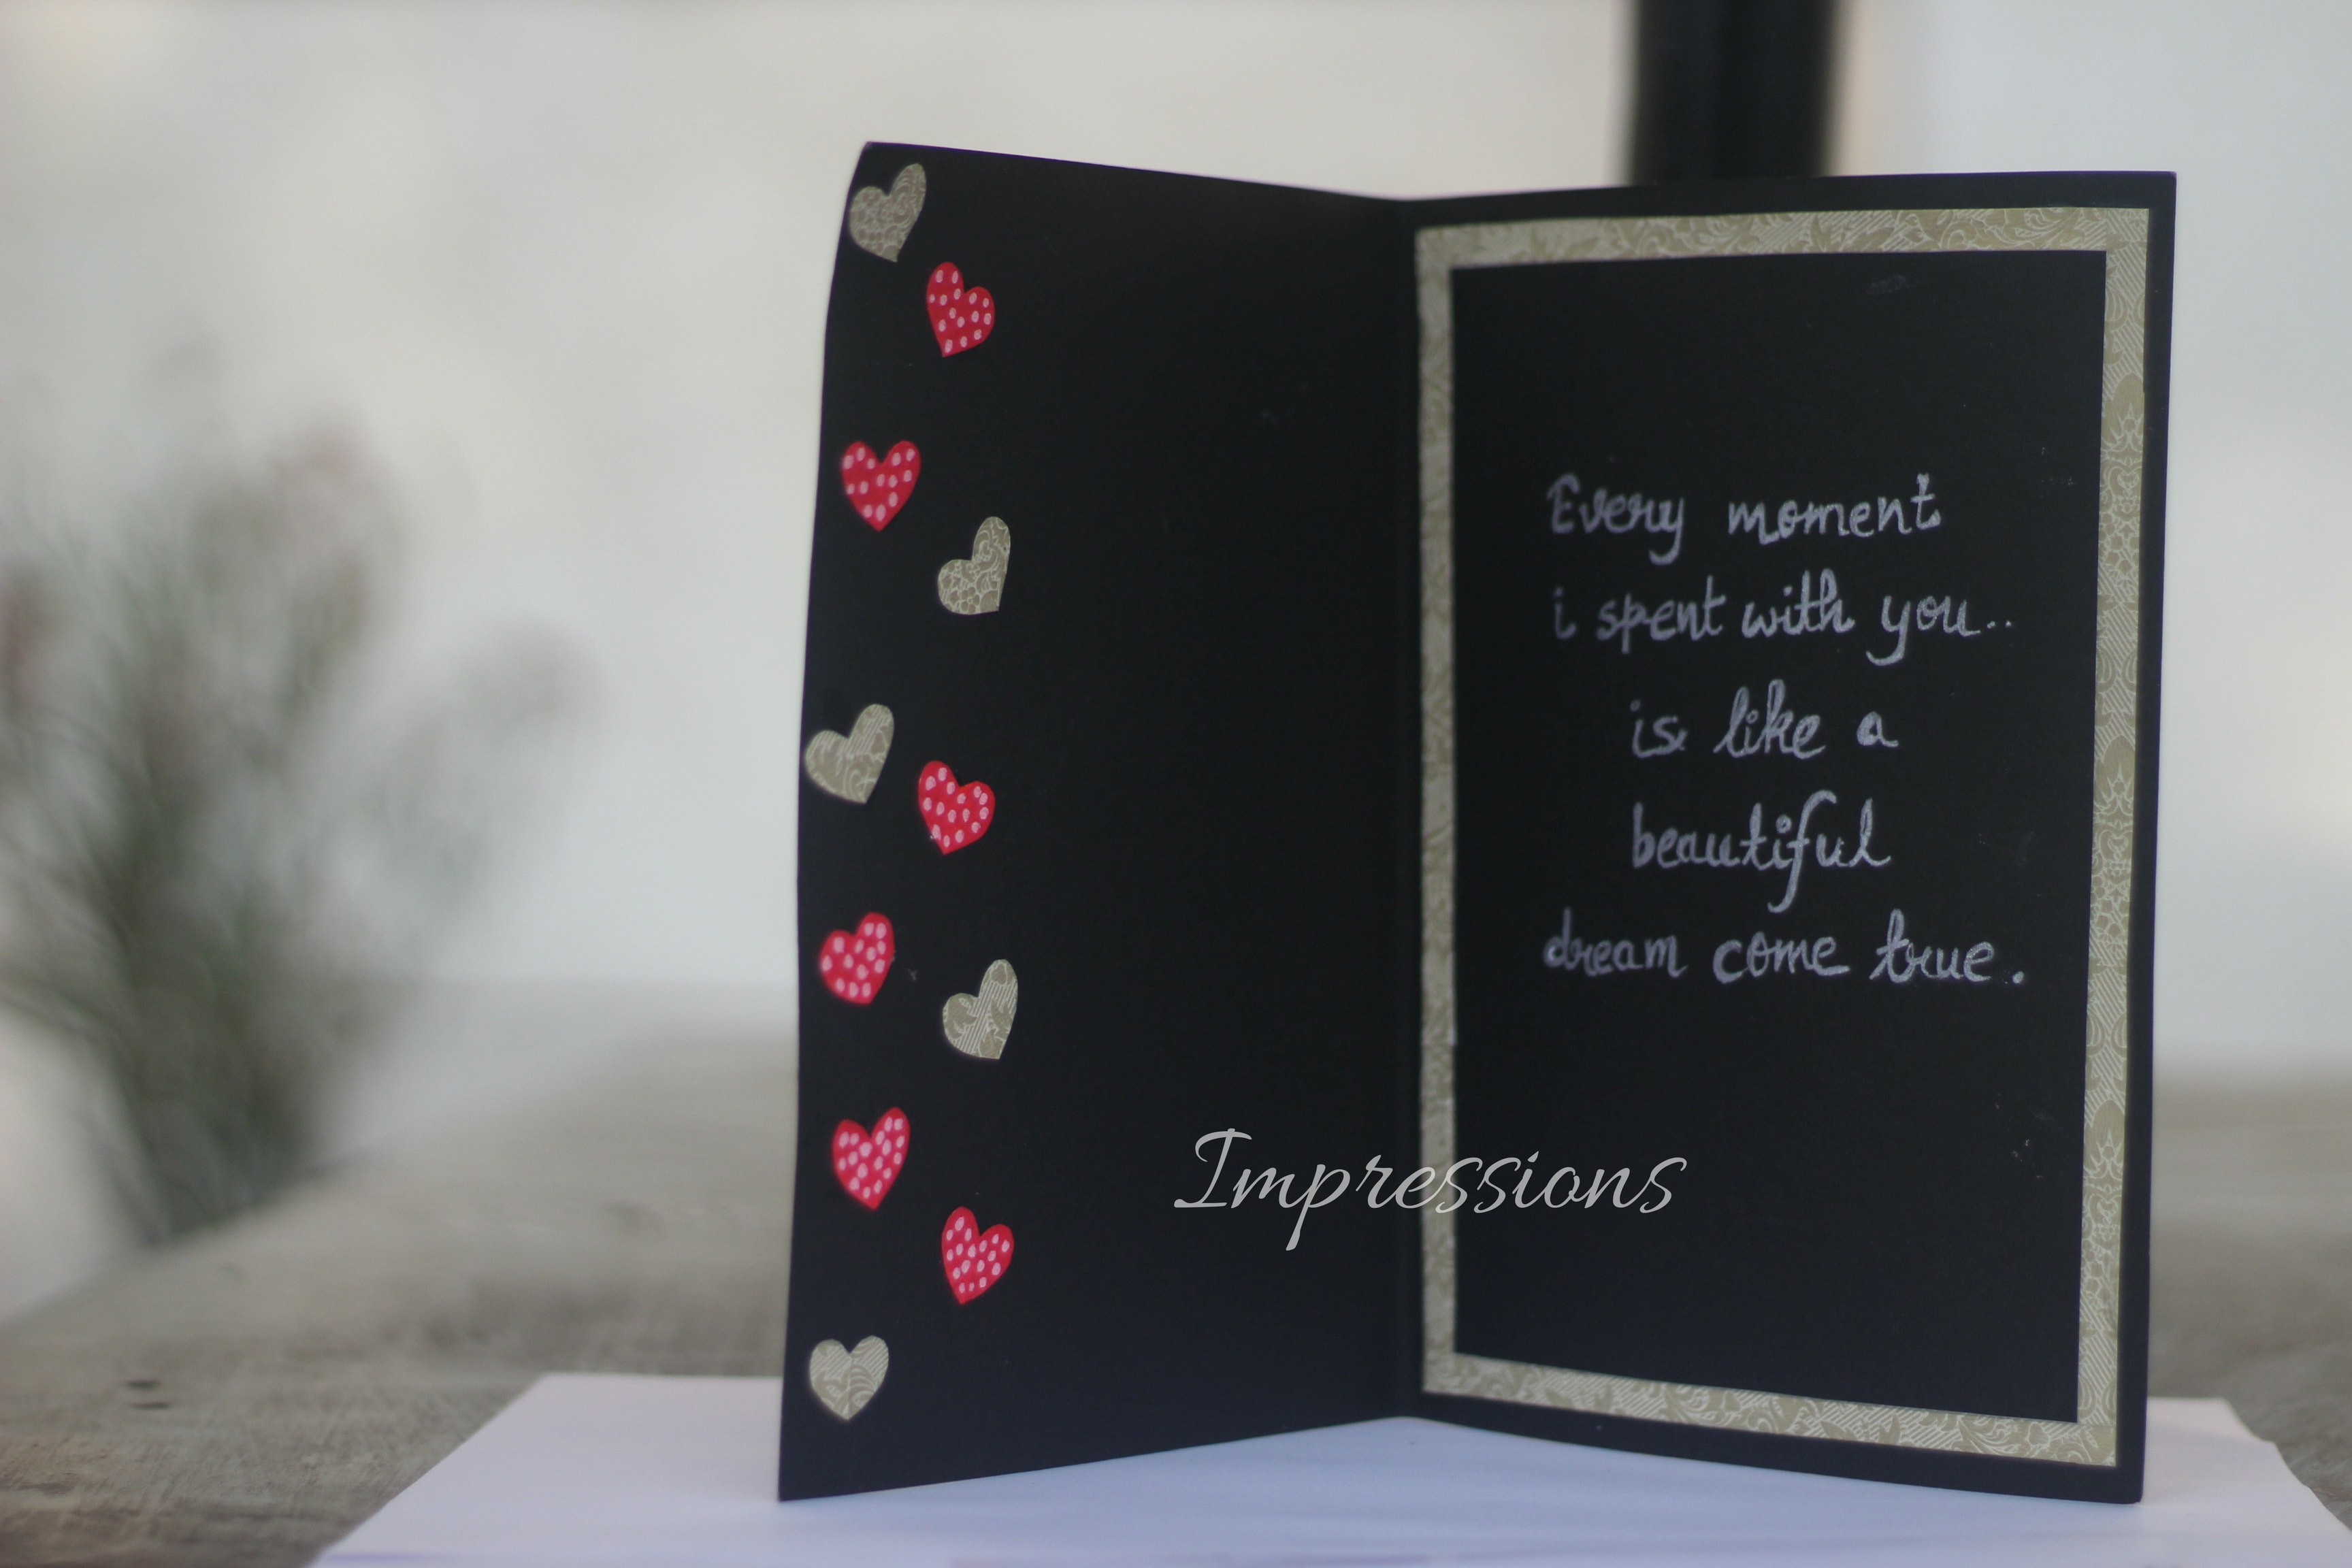 Every moment
i spent with you..
is like a
beautiful
dream come true.
Impressions